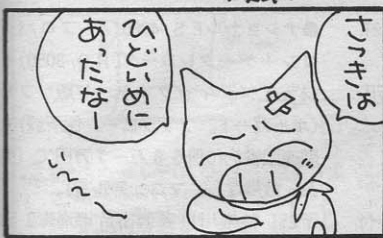 さっきは
ひどいめに
あったなー